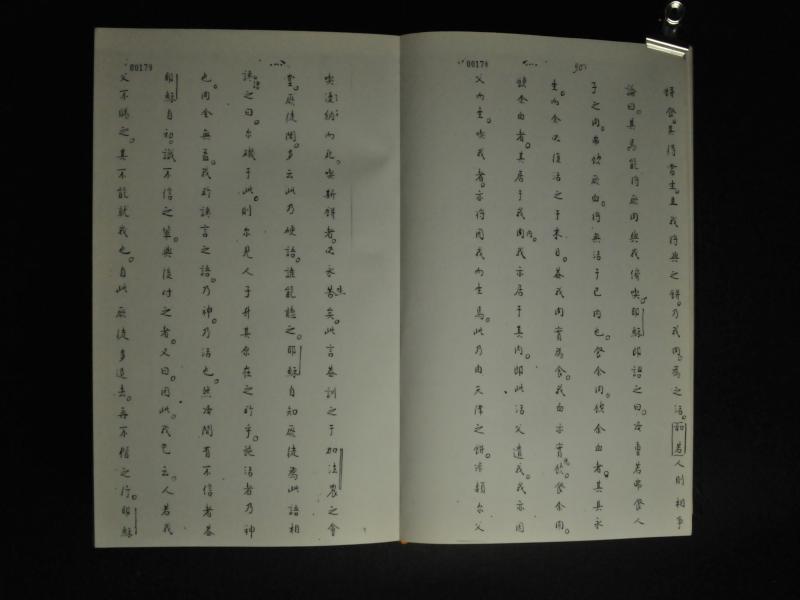 餅。餐。其得常生。且我將與之餅。乃我肉。為之活。如若人則相爭
論曰。其焉能將厥肉與我儕喫。耶穌即語之曰。汝曹若弗餐人
子之肉。弗飲厥血。將無活于己內也。餐余肉。飲余血者。其具永
生。而余必復活之于末日。蓋我肉實為食。我血亦實飲。餐余肉。
飲余血者。其居于我內。我亦居于其內。即如活父遣我。我亦因
父而生。喫我者。亦將因我而生焉。此乃由天降之餅。非類尔父
00179
喫瑪納而死。喫斯餅者。必永甞矣。此言蓋訓之于加法農之會
堂。厥徒聞。多云此乃硬語。誰能聽之。耶穌自知厥徒為此語相
謨之曰。尔礙于此。則尔見人子升其原在之所乎。施活者乃神
也。肉余無益。我所講言之語。乃神。乃活也。然汝間有不信者蓋
耶穌自初。識不信之輩。與後付之者。又曰。因此。我已云。人若我
父不賜之。其不能就我也。自此厥徒多退去。再不偕之行。耶穌
00179